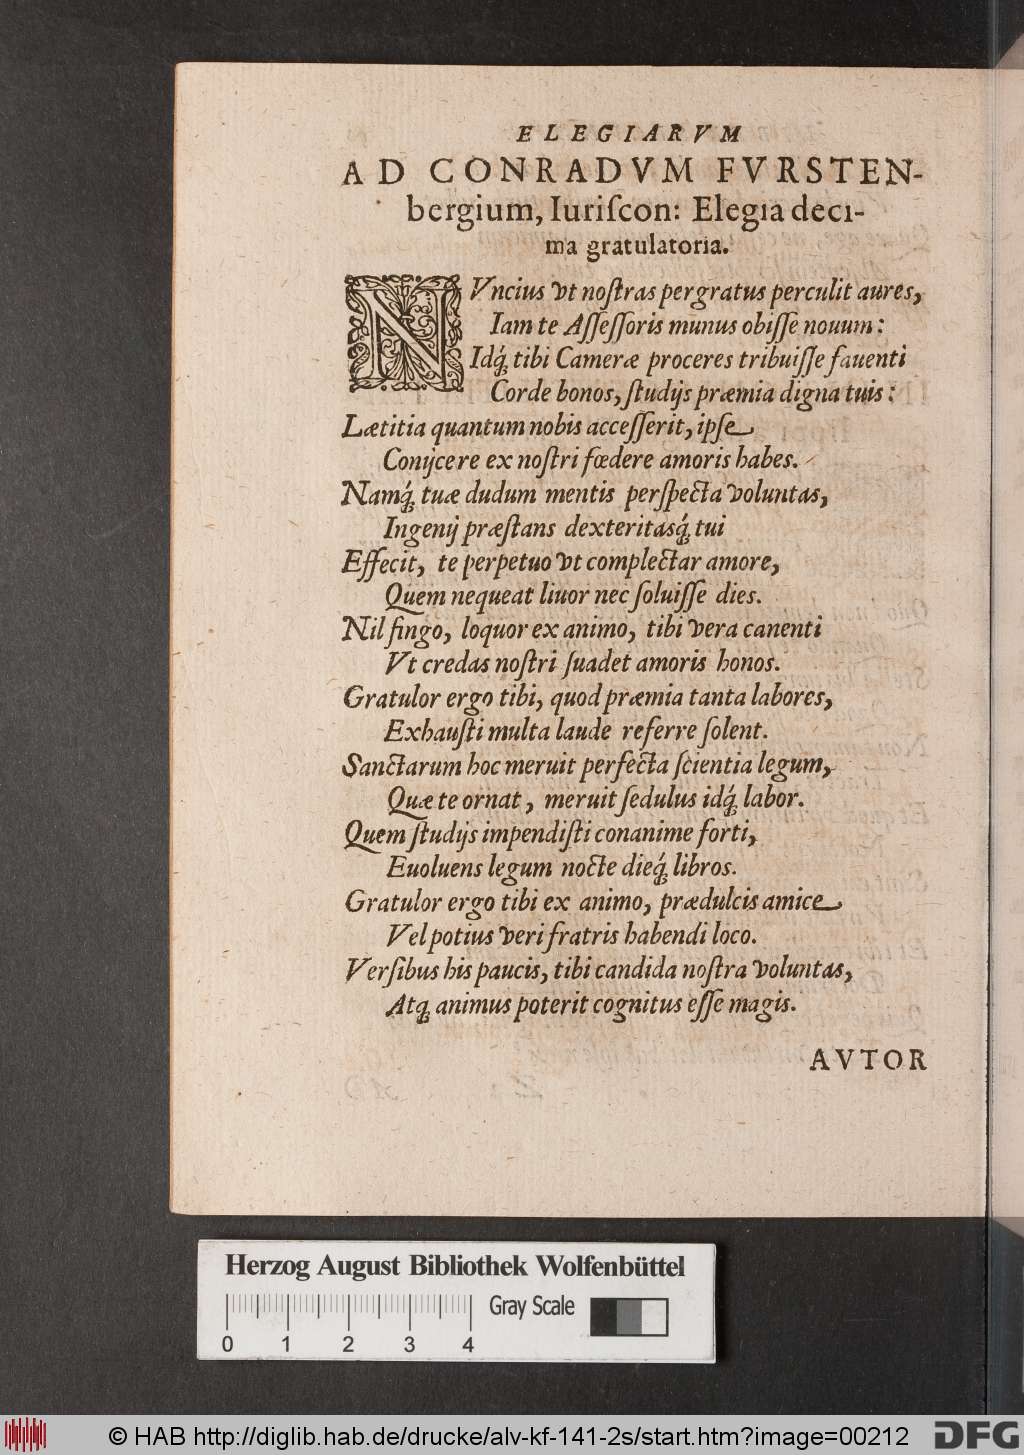 ELEGIARVM
AD CONRADVM FVRSTEN-
bergium, Iuriſcon: Elegia deci-
ma gratulatoria.
NVncius vt noſtras pergratus perculit aures,
Iam te Aſſeſſoris munus obiſſe nouum:
Idq́; tibi Cameræ proceres tribuiſſe fauenti
Corde bonos, ſtudijs præmia digna tuis:
Lætitia quantum nobis acceſſerit, ipſe
Conijcere ex noſtri fœdere amoris habes.
Namq́; tuæ dudum mentis perſpecta voluntas,
Ingenij præſtans dexteritasq́; tui
Effecit, te perpetuo vt complectar amore,
Quem nequeat liuor nec ſoluiſſe dies.
Nil fingo, loquor ex animo, tibi vera canenti
Vt credas noſtri ſuadet amoris honos.
Gratulor ergo tibi, quod præmia tanta labores,
Exhauſti multa laude referre ſolent.
Sanctarum hoc meruit perfecta ſcientia legum,
Quæ te ornat, meruit ſedulus idq́; labor.
Quem ſtudijs impendiſti conanime forti,
Euoluens legum nocte dieq́; libros.
Gratulor ergo tibi ex animo, prædulcis amice
Vel potius veri fratris habendi loco.
Verſibus his paucis, tibi candida noſtra voluntas,
Atq; animus poterit cognitus eſſe magis.
AVTOR
Herzog August Bibliothek Wolfenbüttel
Gray Scale
0 1 2 3 4
© HAB http://diglib.hab.de/drucke/alv-kf-141-2s/start.htm?image=00212
DFG